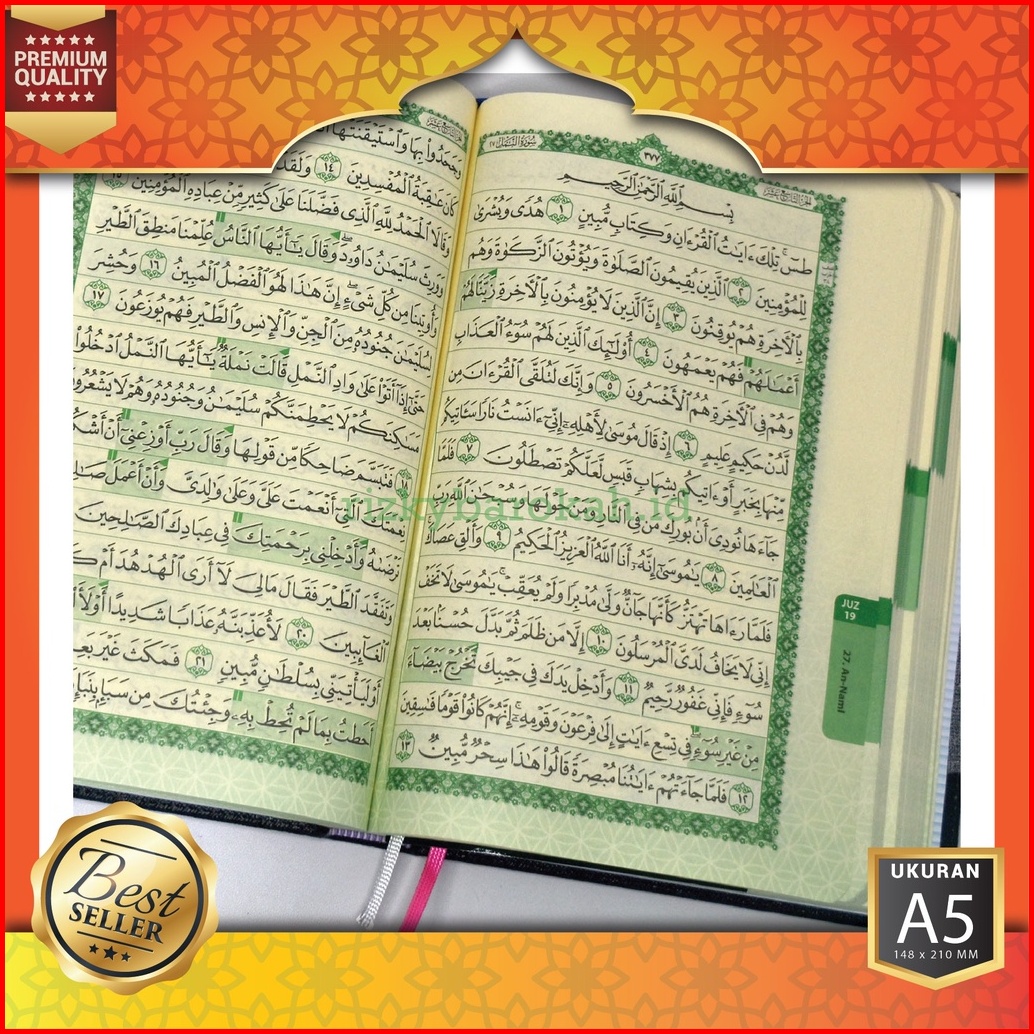 PREMIUM
QUALITY
سُورَةُ النَّمْلِ ٢٧
٣٧٧
الجزء التاسع عشر
بِسْمِ اللَّهِ الرَّحْمَٰنِ الرَّحِيمِ
طسٓۚ تِلْكَ ءَايَٰتُ ٱلْقُرْءَانِ وَكِتَابٍ مُّبِينٍ ١ هُدًى وَبُشْرَىٰ
لِلْمُؤْمِنِينَ ٢ ٱلَّذِينَ يُقِيمُونَ ٱلصَّلَوٰةَ وَيُؤْتُونَ ٱلزَّكَوٰةَ وَهُم
بِٱلْءَاخِرَةِ هُمْ يُوقِنُونَ ٣ إِنَّ ٱلَّذِينَ لَا يُؤْمِنُونَ بِٱلْءَاخِرَةِ زَيَّنَّا لَهُمْ
أَعْمَٰلَهُمْ فَهُمْ يَعْمَهُونَ ٤ أُو۟لَٰٓئِكَ ٱلَّذِينَ لَهُمْ سُوٓءُ ٱلْعَذَابِ
وَهُمْ فِى ٱلْءَاخِرَةِ هُمُ ٱلْأَخْسَرُونَ ٥ وَإِنَّكَ لَتُلَقَّى ٱلْقُرْءَانَ مِن
لَّدُنْ حَكِيمٍ عَلِيمٍ ٦ إِذْ قَالَ مُوسَىٰ لِأَهْلِهِۦٓ إِنِّىٓ ءَانَسْتُ نَارًا سَـَٔاتِيكُم
مِّنْهَا بِخَبَرٍ أَوْ ءَاتِيكُم بِشِهَابٍ قَبَسٍ لَّعَلَّكُمْ تَصْطَلُونَ ٧ فَلَمَّا
جَآءَهَا نُودِىَ أَنۢ بُورِكَ مَن فِى ٱلنَّارِ وَمَنْ حَوْلَهَا وَسُبْحَٰنَ ٱللَّهِ رَبِّ
ٱلْعَٰلَمِينَ ٨ يَٰمُوسَىٰٓ إِنَّهُۥٓ أَنَا ٱللَّهُ ٱلْعَزِيزُ ٱلْحَكِيمُ ٩ وَأَلْقِ عَصَاكَ
فَلَمَّا رَءَاهَا تَهْتَزُّ كَأَنَّهَا جَآنٌّ وَلَّىٰ مُدْبِرًا وَلَمْ يُعَقِّبْۚ يَٰمُوسَىٰ لَا تَخَفْ
إِنِّى لَا يَخَافُ لَدَىَّ ٱلْمُرْسَلُونَ ١٠ إِلَّا مَن ظَلَمَ ثُمَّ بَدَّلَ حُسْنًۢا بَعْدَ
سُوٓءٍ فَإِنِّى غَفُورٌ رَّحِيمٌ ١١ وَأَدْخِلْ يَدَكَ فِى جَيْبِكَ تَخْرُجْ بَيْضَآءَ
مِنْ غَيْرِ سُوٓءٍ فِى تِسْعِ ءَايَٰتٍ إِلَىٰ فِرْعَوْنَ وَقَوْمِهِۦٓ إِنَّهُمْ كَانُوا۟ قَوْمًا فَٰسِقِينَ
١٢ فَلَمَّا جَآءَتْهُمْ ءَايَٰتُنَا مُبْصِرَةً قَالُوا۟ هَٰذَا سِحْرٌ مُّبِينٌ ١٣
JUZ
19
27. An-Naml
وَجَحَدُوا۟ بِهَا وَٱسْتَيْقَنَتْهَآ
كَانَ عَٰقِبَةُ ٱلْمُفْسِدِينَ ١٤ وَلَقَدْ
وَقَالَا ٱلْحَمْدُ لِلَّهِ ٱلَّذِى فَضَّلَنَا عَلَىٰ كَثِيرٍ مِّنْ عِبَادِهِ ٱلْمُؤْمِنِينَ ١٥
وَوَرِثَ سُلَيْمَٰنُ دَاوُۥدَۖ وَقَالَ يَٰٓأَيُّهَا ٱلنَّاسُ عُلِّمْنَا مَنطِقَ ٱلطَّيْرِ
وَأُوتِينَا مِن كُلِّ شَىْءٍۖ إِنَّ هَٰذَا لَهُوَ ٱلْفَضْلُ ٱلْمُبِينُ ١٦ وَحُشِرَ
لِسُلَيْمَٰنَ جُنُودُهُۥ مِنَ ٱلْجِنِّ وَٱلْإِنسِ وَٱلطَّيْرِ فَهُمْ يُوزَعُونَ ١٧
حَتَّىٰٓ إِذَآ أَتَوْا۟ عَلَىٰ وَادِ ٱلنَّمْلِ قَالَتْ نَمْلَةٌ يَٰٓأَيُّهَا ٱلنَّمْلُ ٱدْخُلُوا۟
مَسَٰكِنَكُمْ لَا يَحْطِمَنَّكُمْ سُلَيْمَٰنُ وَجُنُودُهُۥ وَهُمْ لَا يَشْعُرُونَ
١٨ فَتَبَسَّمَ ضَاحِكًا مِّن قَوْلِهَا وَقَالَ رَبِّ أَوْزِعْنِىٓ أَنْ أَشْكُرَ
نِعْمَتَكَ ٱلَّتِىٓ أَنْعَمْتَ عَلَىَّ وَعَلَىٰ وَٰلِدَىَّ وَأَنْ أَعْمَلَ
تَرْضَىٰهُ وَأَدْخِلْنِى بِرَحْمَتِكَ فِى عِبَادِكَ ٱلصَّٰلِحِينَ
وَتَفَقَّدَ ٱلطَّيْرَ فَقَالَ مَالِىَ لَآ أَرَى ٱلْهُدْهُدَ أَمْ
ٱلْغَآئِبِينَ ٢٠ لَأُعَذِّبَنَّهُۥ عَذَابًا شَدِيدًا أَوْ
أَوْ لَيَأْتِيَنِّى بِسُلْطَٰنٍ مُّبِينٍ ٢١ فَمَكَثَ غَيْرَ
أَحَطتُ بِمَا لَمْ تُحِطْ بِهِۦ وَجِئْتُكَ مِن سَبَإٍۭ بِنَبَإٍ
rizkybarokah.id
Best
SELLER
UKURAN
A5
148 x 210 MM